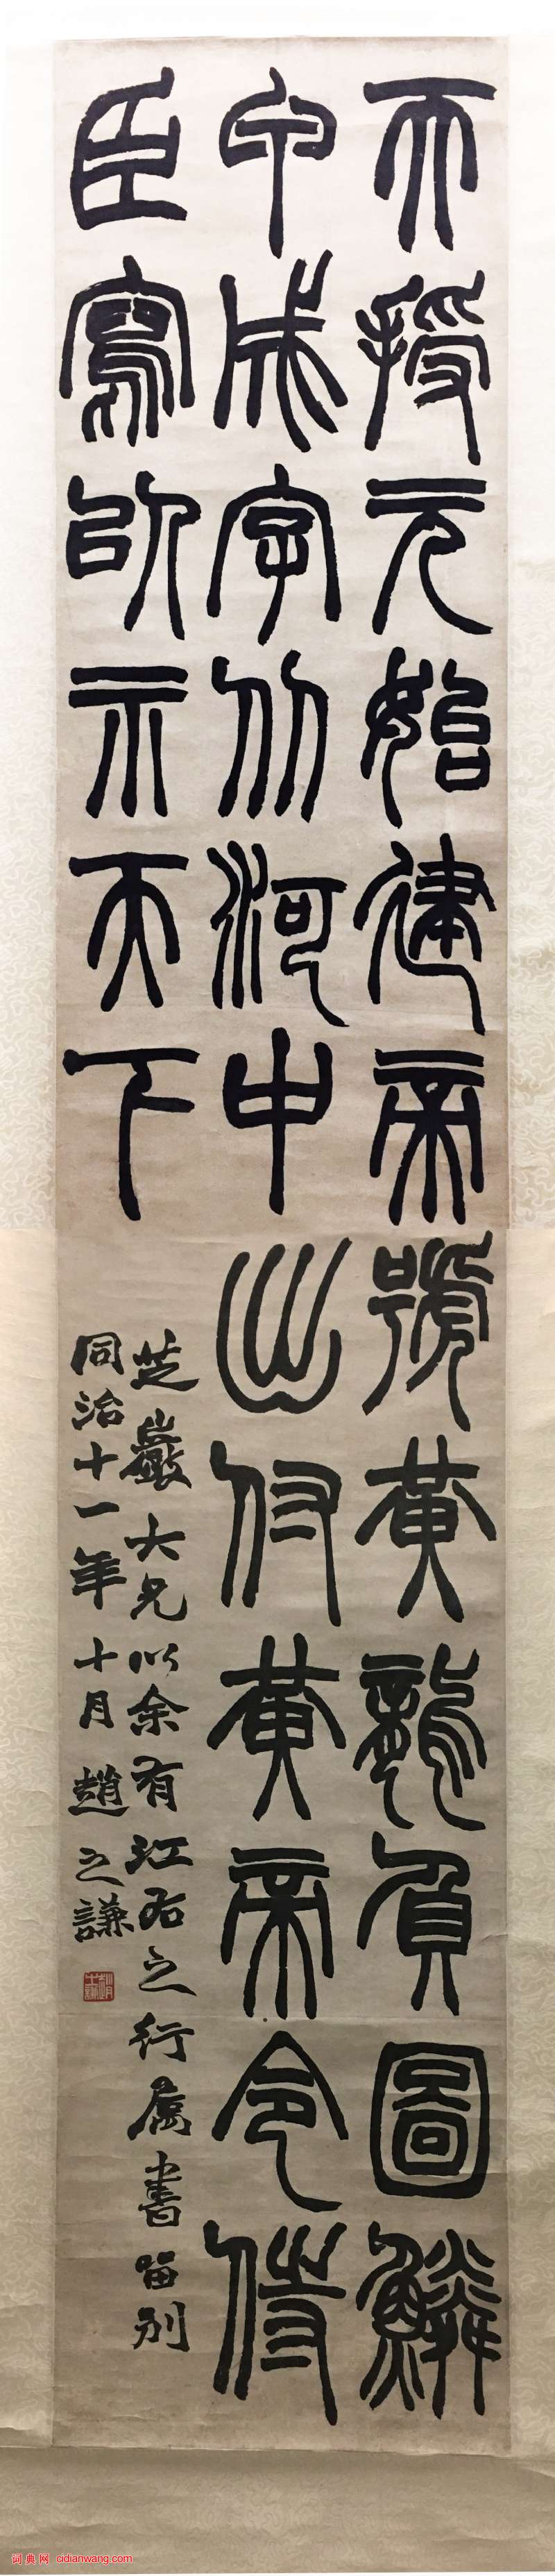 天授元始建帝號黃龍負圖鱗
甲成字从河中出付黃帝令侍
臣寫以示天下
芝巖大兄以余有江右之行属書留别
同治十一年十月趙之謙
词典网 cidianwang.com